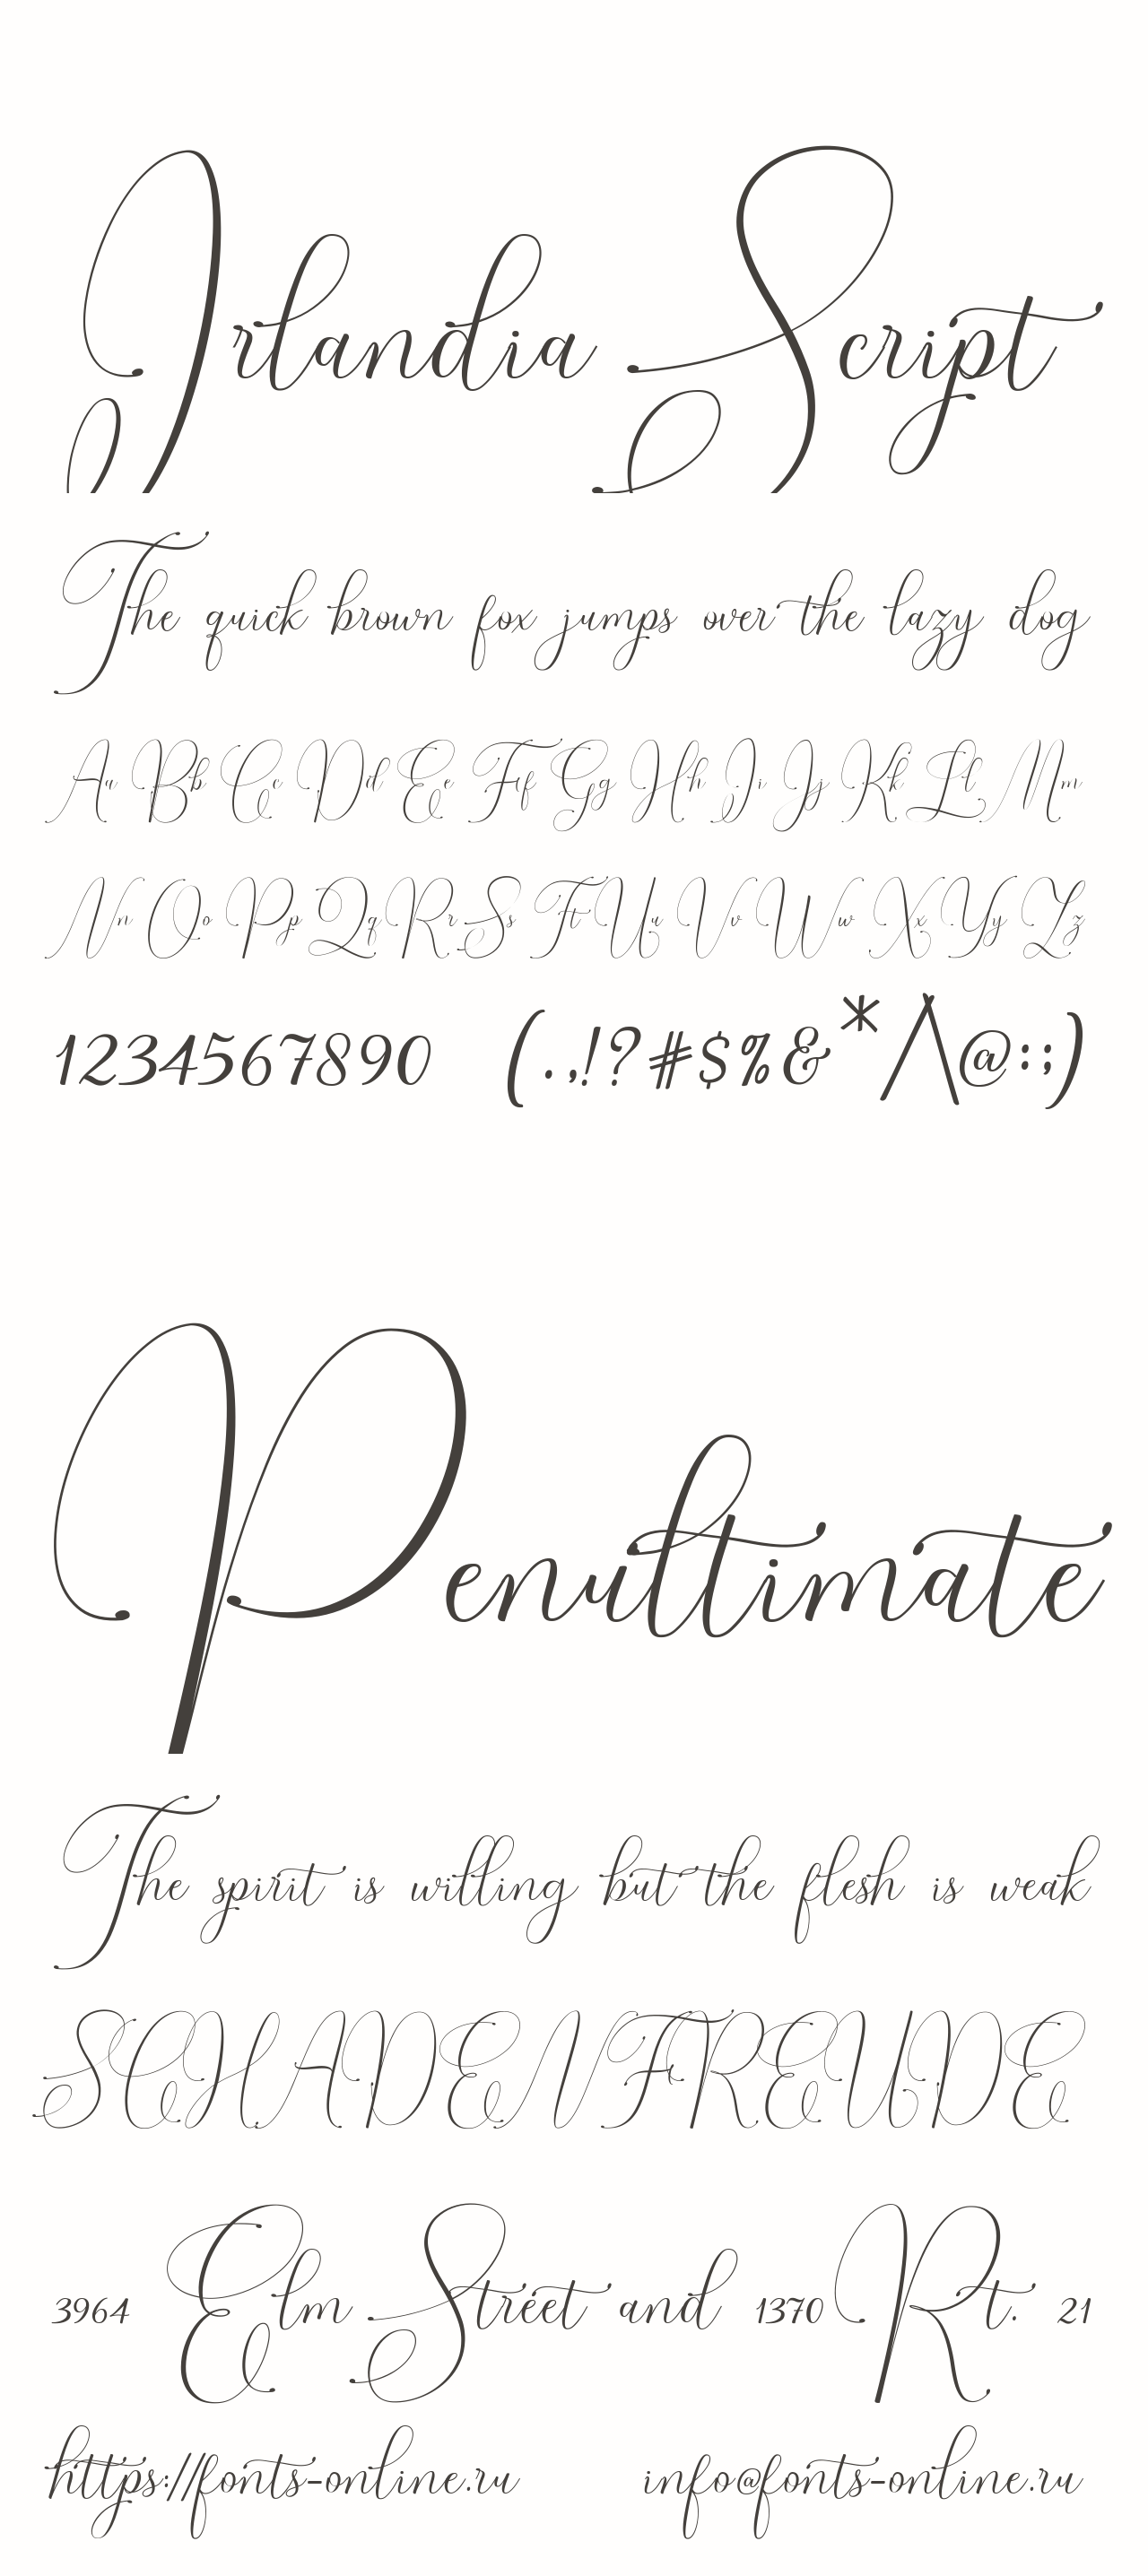 Irlandia Script
The quick brown fox jumps over the lazy dog
Aa Bb Cc Dd Ee Ff Gg Hh Ii Jj Kk Ll Mm
Nn Oo Pp Qq Rr Ss Tt Uu Vv Ww Xx Yy Zz
1234567890 (.,!?#$%&*/\@:;)
Penultimate
The spirit is willing but the flesh is weak
SCHADENFREUDE
3964 Elm Street and 1370 Rt. 21
https://fonts-online.ru info@fonts-online.ru